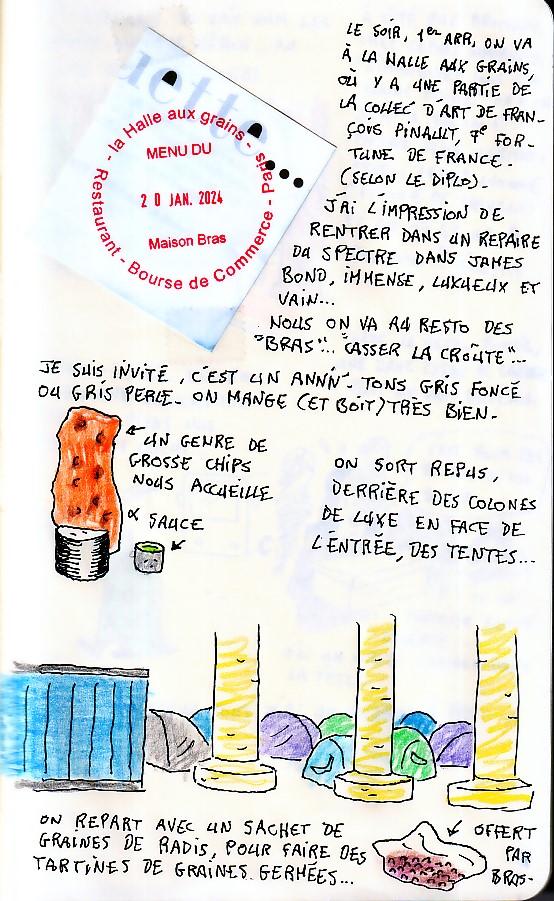 uette...
- la Halle aux grains - Pads - Bourse de Commerce - Restaurant
MENU DU
20 JAN. 2024
Maison Bras
LE SOIR, 1er ARR, ON VA
À LA HALLE AUX GRAINS,
OÙ Y A UNE PARTIE DE
LA COLLEC D'ART DE FRAN-
ÇOIS PINAULT, 7e FOR-
TUNE DE FRANCE.
(SELON LE DIPLO).
J'AI L'IMPRESSION DE
RENTRER DANS UN REPAIRE
DU SPECTRE DANS JAMES
BOND, IMMENSE, LUXUEUX ET
VAIN...
NOUS ON VA AU RESTO DES
"BRAS"... "CASSER LA CROÛTE"...
JE SUIS INVITÉ, C'EST UN ANNIV. TONS GRIS FONCÉ
OU GRIS PERLE. ON MANGE (ET BOIT) TRÈS BIEN.
UN GENRE DE
GROSSE CHIPS
NOUS ACCUEILLE
SAUCE
ON SORT REPUS,
DERRIÈRE DES COLONES
DE LUXE EN FACE DE
L'ENTRÉE, DES TENTES...
ON REPART AVEC UN SACHET DE
GRAINES DE RADIS, POUR FAIRE DES
TARTINES DE GRAINES GERMÉES...
OFFERT
PAR
BRAS-